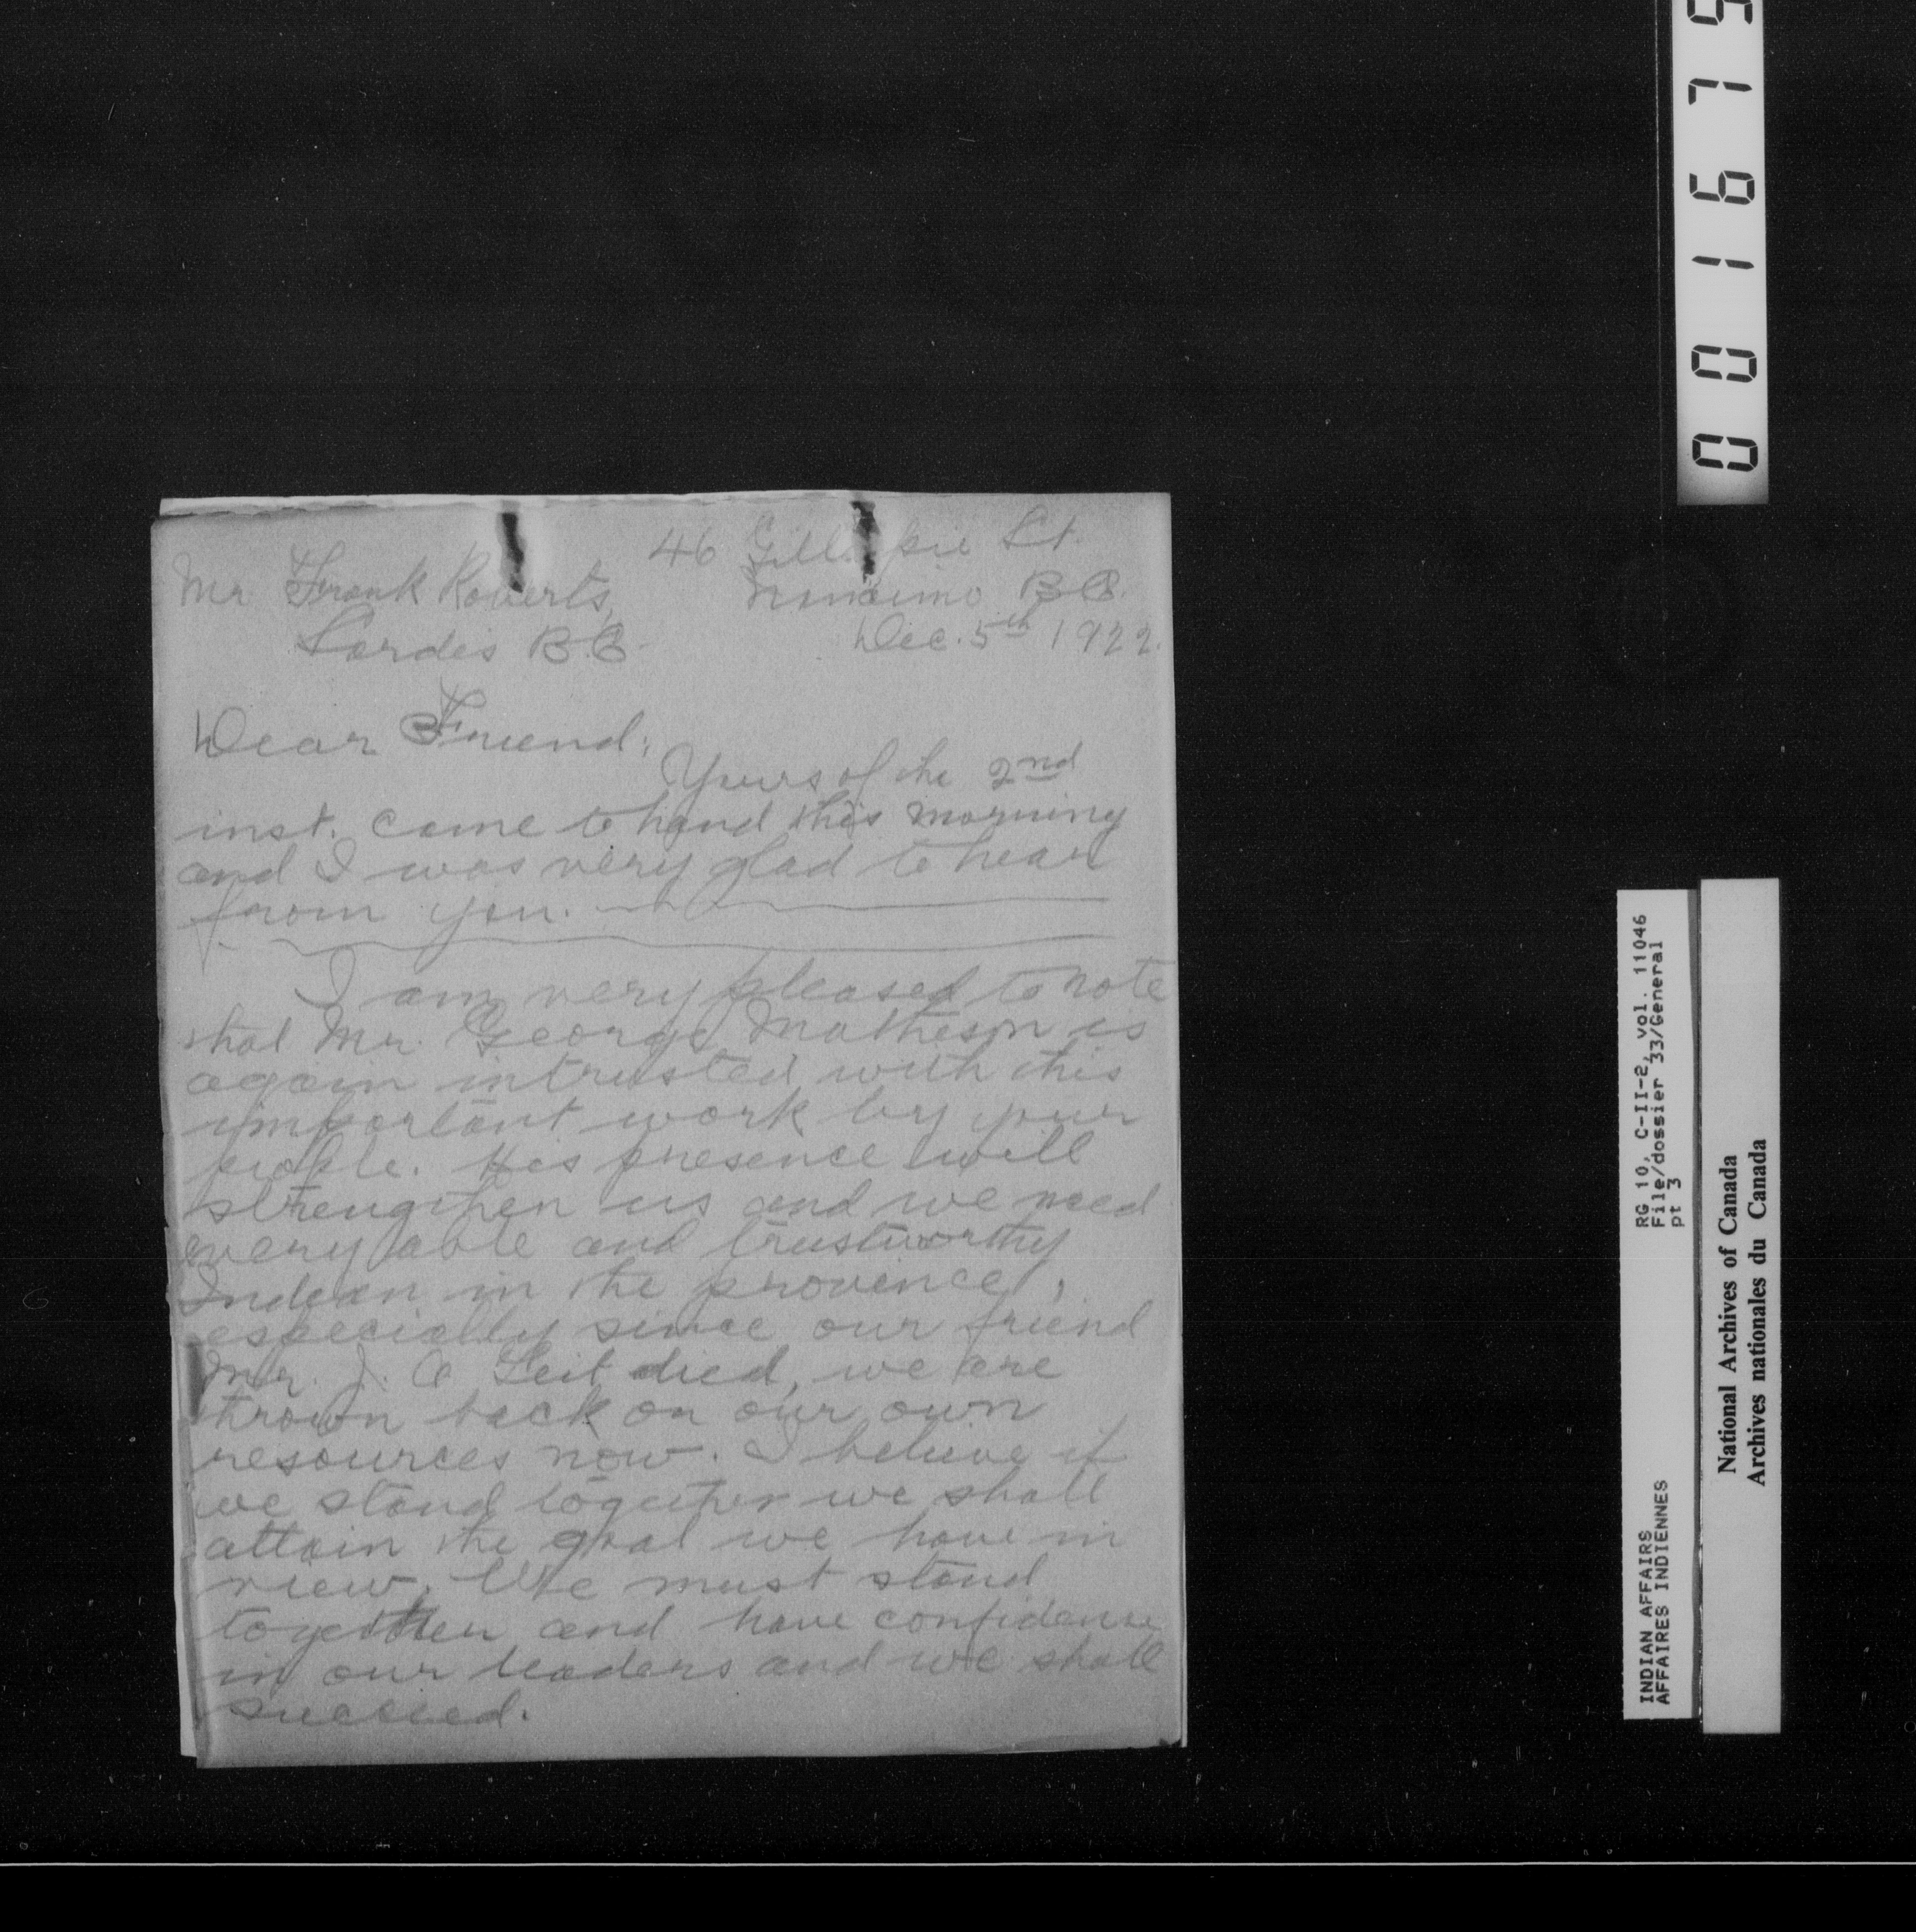 46 Gillespie St.
Mr Frank Roberts, Nanaimo B.C.
Sardis B.C. Dec. 5th 1922.
Dear Friend:
Yours of the 2nd
inst. came to hand this morning
and I was very glad to hear
from you.
I am very pleased to note
that Mr. George Matheson is
again intrusted with this
important work by your
people. His presence will
strengthen us and we need
every able and trustworthy
Indian in the province,
especially since our friend
Mr. J. A Teit died, we are
thrown back on our own
resources now. I believe if
we stand together we shall
attain the goal we have in
view. We must stand
together and have confidence
in our leaders and we shall
succeed.
001679
RG 10, C-II-2, vol. 11046
File/dossier 33/General
pt 3
INDIAN AFFAIRS
AFFAIRES INDIENNES
National Archives of Canada
Archives nationales du Canada